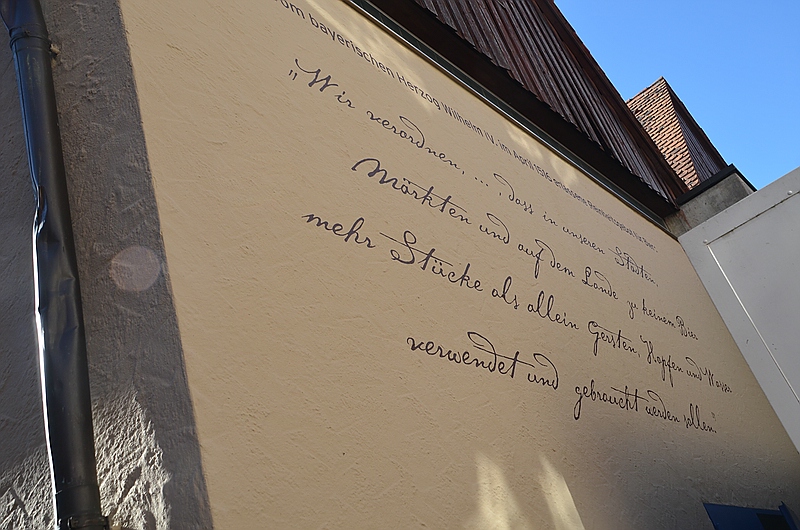 om bayerischen Herzog Wilhelm IV. im April 1516 erlassene
„Wir verordnen, ..., dass in unseren Städten,
Märkten und auf dem Lande zu keinem Bier
mehr Stücke als allein Gersten, Hopfen und Wasser
verwendet und gebraucht werden sollen."